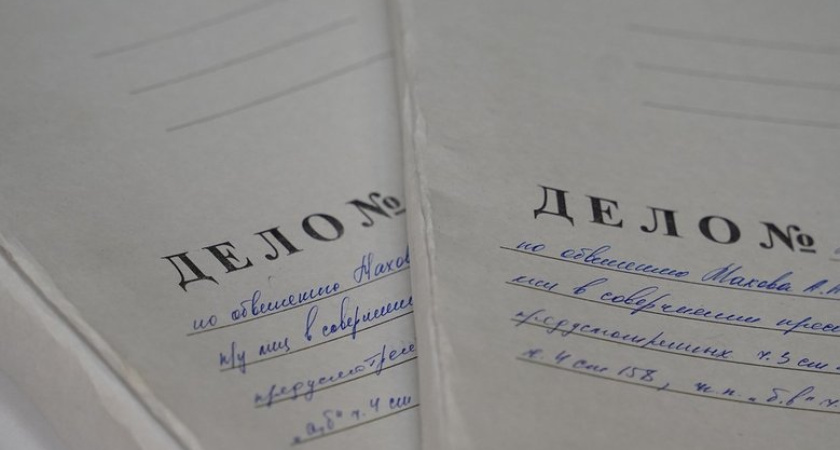 ДЕЛО №
по обвинению Махов
др лиц в совершен
предусмотрен
„а,б" ч. 4 ст
ДЕЛО №
по обвинению Махова А.
лиц в совершении прес
предусмотренных ч. 3 ст
ч. 4 ст 158, п.п. „б.в" ч.